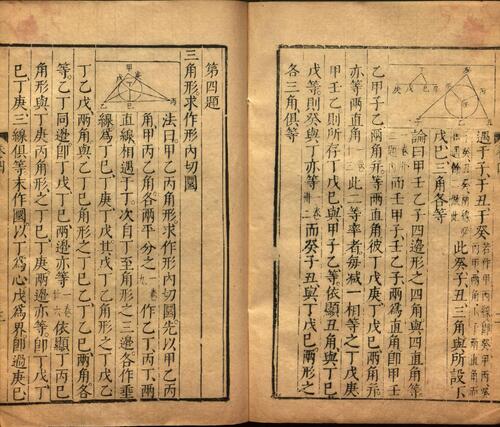 遇于子于丑于癸
此癸子丑三角與所設丁
戊己三角各等
論曰甲壬乙子四邊形之四角與四直角
而壬甲子壬乙子兩為直角即甲壬
乙甲子乙兩角
亦等兩直角
此二等率者每減一相等之丁戊庚
甲壬乙則所存丁戊己與甲子乙等依顯丑角與丁己
戊等則癸與丁亦等
而癸子丑與丁戊己兩形之
各三角俱等
第四題
三角形求作形內切圜
法曰甲乙丙角形求作形內切圜先以甲乙丙
角甲丙乙角各兩平分之
作乙丁丙丁兩
直線相遇于丁次自丁至角形之三邊各作垂
線為丁己丁庚丁戊其戊丁乙角形之丁戊乙
丁乙戊兩角與乙丁己角形之丁己乙丁乙己兩角各
等乙丁同邊即丁戊丁己兩邊亦等
依顯丁丙己
角形與丁庚丙角形之丁己丁庚兩邊亦等即丁戊丁
己丁庚三線俱等末作圜以丁為心戊為界即過庚己